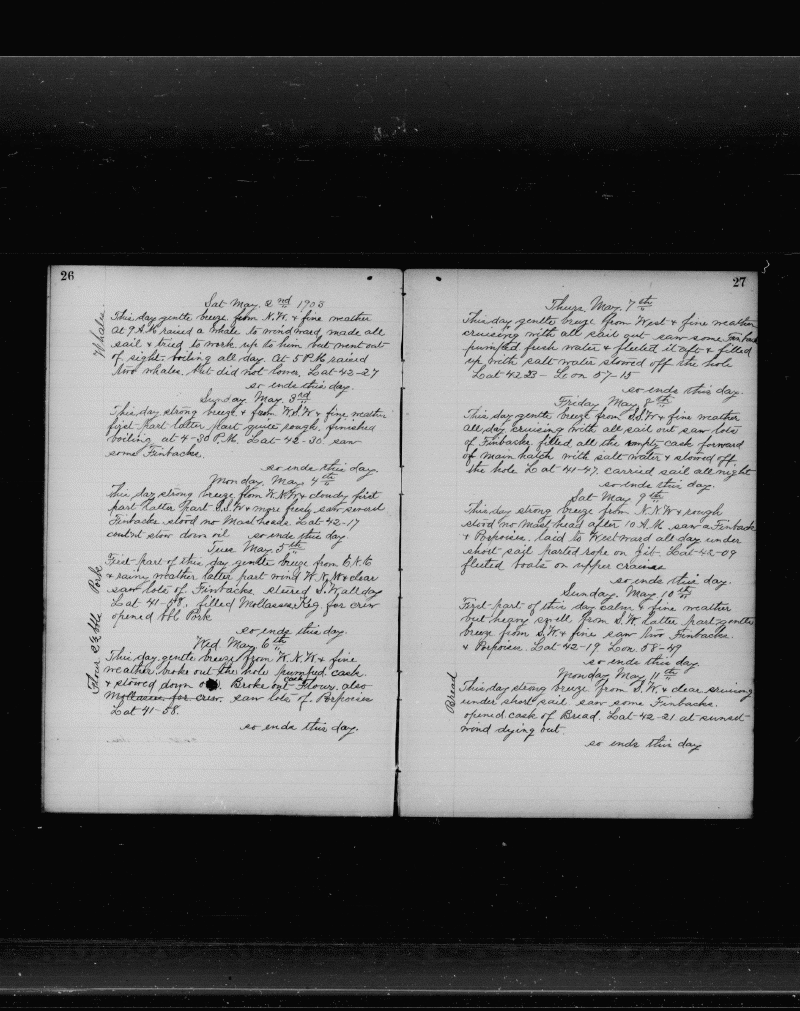 26
Sat May. 2nd 1903
Whales.
This day gentle breeze from N.W. & fine weather
at 9 A.M raised a whale to windward, made all
sail & tried to work up to him but went out
of sight. boiling all day. At 5 P.M. raised
two whales. but did not lower. Lat 42-27
so ends this day.
Sunday. May. 3rd
This day strong breeze & from W.S.W & fine weather
first part latter part quite rough. finished
boiling at 4-30 P.M. Lat 42-30 saw
some Finbacks.
so ends this day.
Monday. May. 4th
This day strong breeze from W.N.W & cloudy first
part latter part S.S.W & more fresh, saw several
Finbacks stood no Mastheads. Lat 42-17
stow down oil so ends this day.
Tues May. 5th
First part of this day gentle breeze from
& rainy weather, latter part wind W.N.W & clear
saw lots of Finbacks. steered S.W. all day
Lat 41-58. filled Mollasses Keg for crew
opened bbl Pork
Pork
so ends this day.
Wed. May. 6th
Flour bbl
This day gentle breeze from W.N.W & fine
weather. broke out the hole pumped cask
& stowed down oil. Broke out cask Flour, also
Mollasses for crew, saw lots of Porpoises
Lat 41-58.
so ends this day.
27
Thurs. May. 7th
This day gentle breeze from West & fine weather
cruising with all sail out saw some Finbacks
pumped fresh water & fleeted it aft & filled
up with salt water stowed off the hole
Lat 42 23 - Lon 57-15
so ends this day.
Friday May 8th
This day gentle breeze from S.S.W & fine weather
all day cruising with all sail out saw lots
of Finbacks. filled all the empty cask forward
of main hatch with salt water & stowed off
the hole Lat 41-47. carried sail all night
so ends this day.
Sat May 9th
This day strong breeze from N.N.W & rough
stood no Mast head after 10 A.M. saw a Finback
& Porpoises. laid to Westward all day under
short sail parted rope on Jib. Lat-42-09
fleeted boats on upper cranes
so ends this day.
Sunday. May 10th
First part of this day calm & fine weather
but heavy swell from S.W. latter part gentle
breeze from S.W. & fine saw two Finbacks.
& Porpoises. Lat 42-19 Lon. 58-49
so ends this day
Monday May 11th
Bread
This day strong breeze from S.W. & clear cruising
under short sail saw some Finbacks.
opened cask of Bread. Lat 42-21 at sunset
wind dying out.
so ends this day